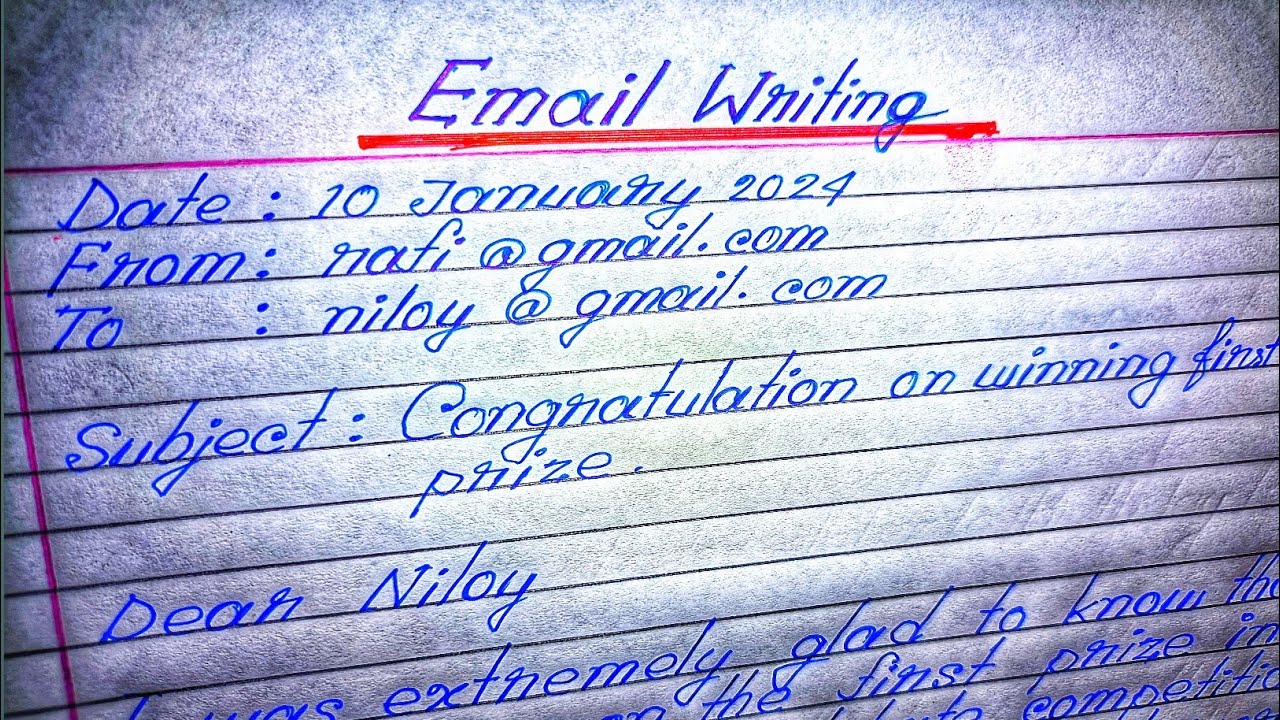 Email Writing
Date : 10 January 2024
From : rafi@gmail.com
To : niloy@gmail.com
Subject : Congratulation on winning first
prize.
Dear Niloy
I was extremely glad to know
on the first prize in